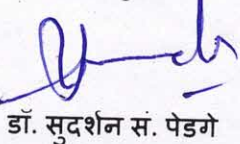 डॉ. सुदर्शन सं. पेडगे